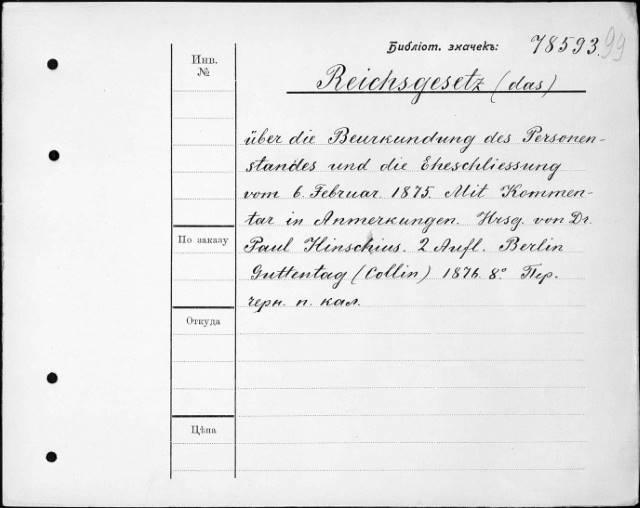 Библіот. значекъ: 78593.99
Инв. №
Reichsgesetz (das)
über die Beurkundung des Personen-
standes und die Eheschliessung
vom 6. Februar. 1875. Mit Kommen-
tar in Anmerkungen. Hrsg. von Dr.
По заказу
Paul Hinschius. 2 Aufl. Berlin
Guttentag (Collin) 1876. 8° Пер.
черн. п. кал.
Откуда
Цѣна